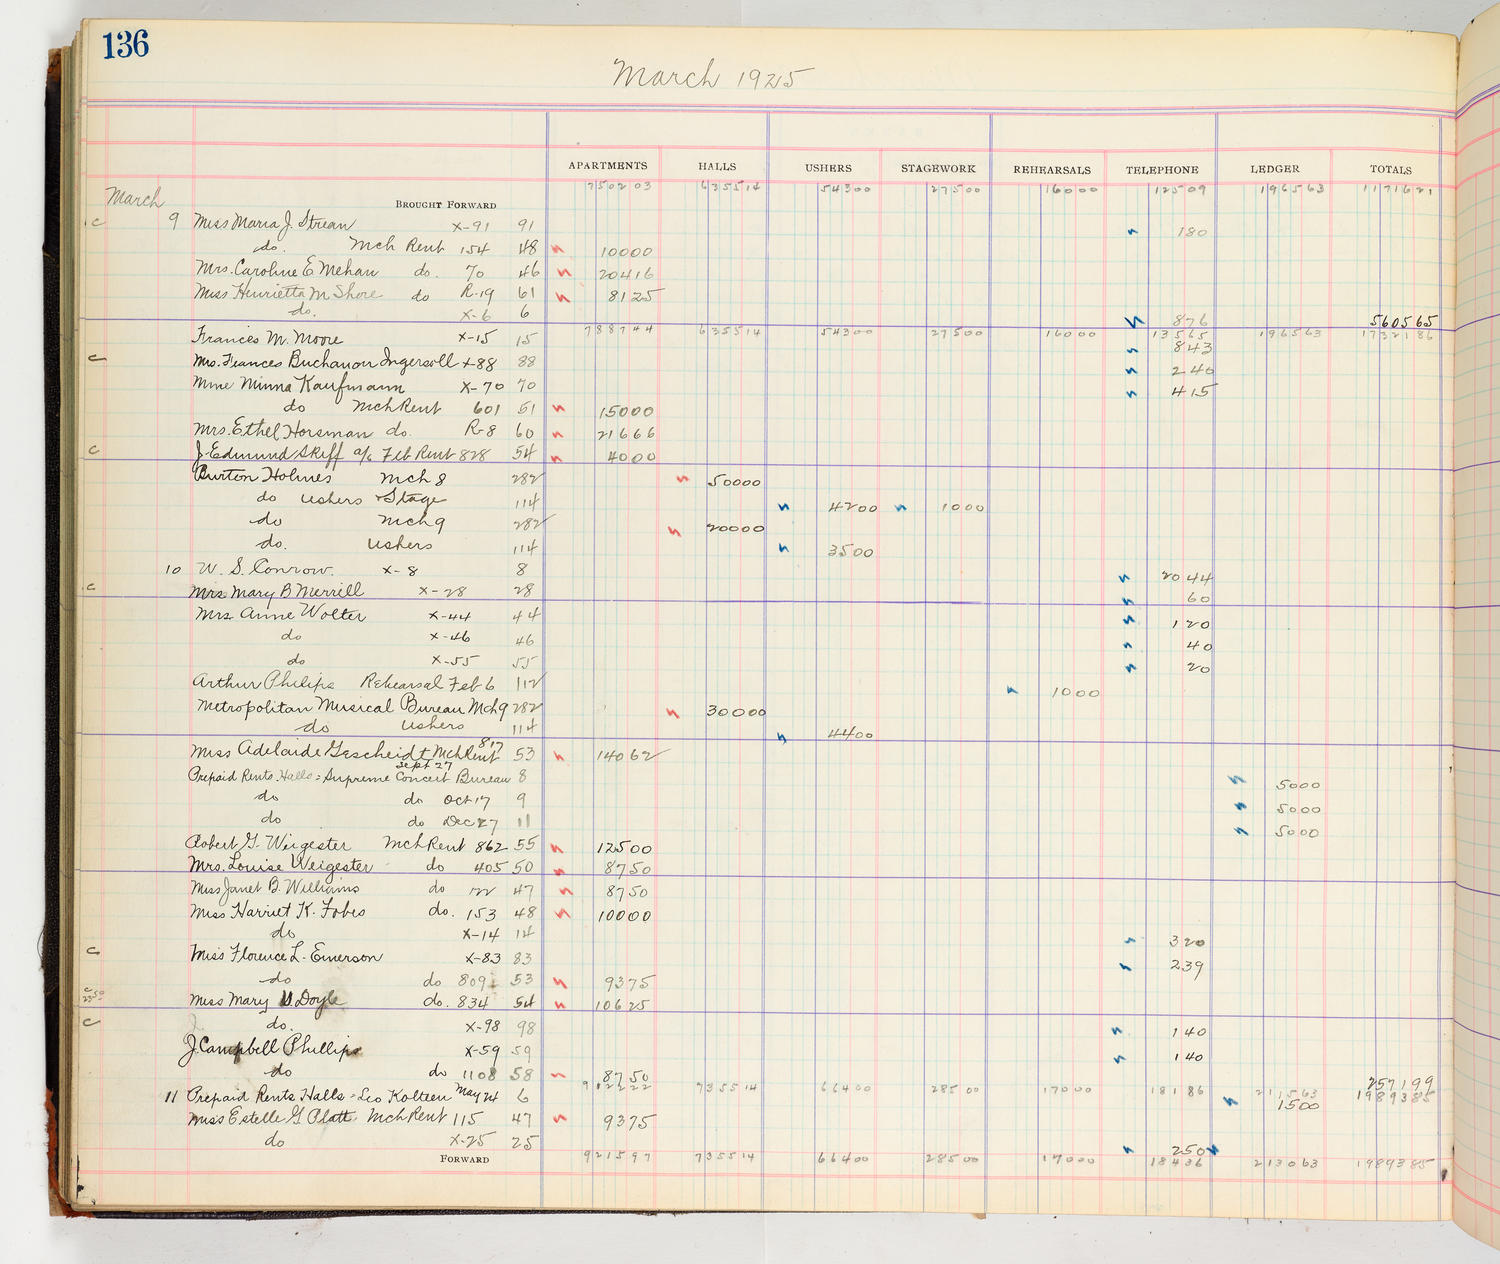 136
March 1925
APARTMENTS HALLS USHERS STAGEWORK REHEARSALS TELEPHONE LEDGER TOTALS
March BROUGHT FORWARD 750203 635514 54300 27500 16000 12509 196563 1171621
c 9 Miss Maria J. Strean X-91 91 180
do. Mch Rent 154 48 10000
Mrs. Caroline E Mehan do. 70 46 20416
Miss Henrietta M Shore do R-19 61 8125
do. X-6 6 876 560565
788744 635514 54300 27500 16000 13565 196563 1732186
Frances M. Moore X-15 15 843
c Mrs. Frances Buchanon Ingersoll X-88 88 240
Mme Minna Kaufmann X-70 70 415
do Mch Rent 601 51 15000
Mrs. Ethel Horsman do. R-8 60 21666
c J. Edmund Skiff a/c Feb Rent 828 54 4000
Burton Holmes Mch 8 282 50000
do Ushers + Stage 114 4200 1000
do Mch 9 282 20000
do. Ushers 114 3500
10 W. S. Conrow. X-8 8 2044
c Mrs Mary B Merrill X-28 28 60
Mrs. Anne Wolter X-44 44 120
do X-46 46 40
do X-55 55 20
Arthur Philips Rehearsal Feb 6 112 1000
Metropolitan Musical Bureau Mch 9 282 30000
do Ushers 114 4400
Miss Adelaide Gescheidt Mch Rent 817 53 14062
Prepaid Rents. Halls = Supreme Concert Bureau Sept 27 8 5000
do do Oct 17 9 5000
do do Dec 27 11 5000
Robert G. Weigester Mch Rent 862 55 12500
Mrs. Louise Weigester do 405 50 8750
Miss Janet B. Williams do 122 47 8750
Miss Harriet K. Fobes do. 153 48 10000
do X-14 14 320
c Miss Florence L. Emerson X-83 83 239
do do 809 53 9375
c Miss Mary V. Doyle do. 834 54 10625
c do. X-98 98 140
J. Campbell Phillips X-59 59 140
do do 1108 58 8750 257199
912222 735514 66400 28500 17000 18186 211563 1989385
11 Prepaid Rents Halls = Leo Kolteen May 24 6 1500
Miss Estelle G Platt Mch Rent 115 47 9375
do X-25 25 250
FORWARD 921597 735514 66400 28500 17000 18436 213063 1989385